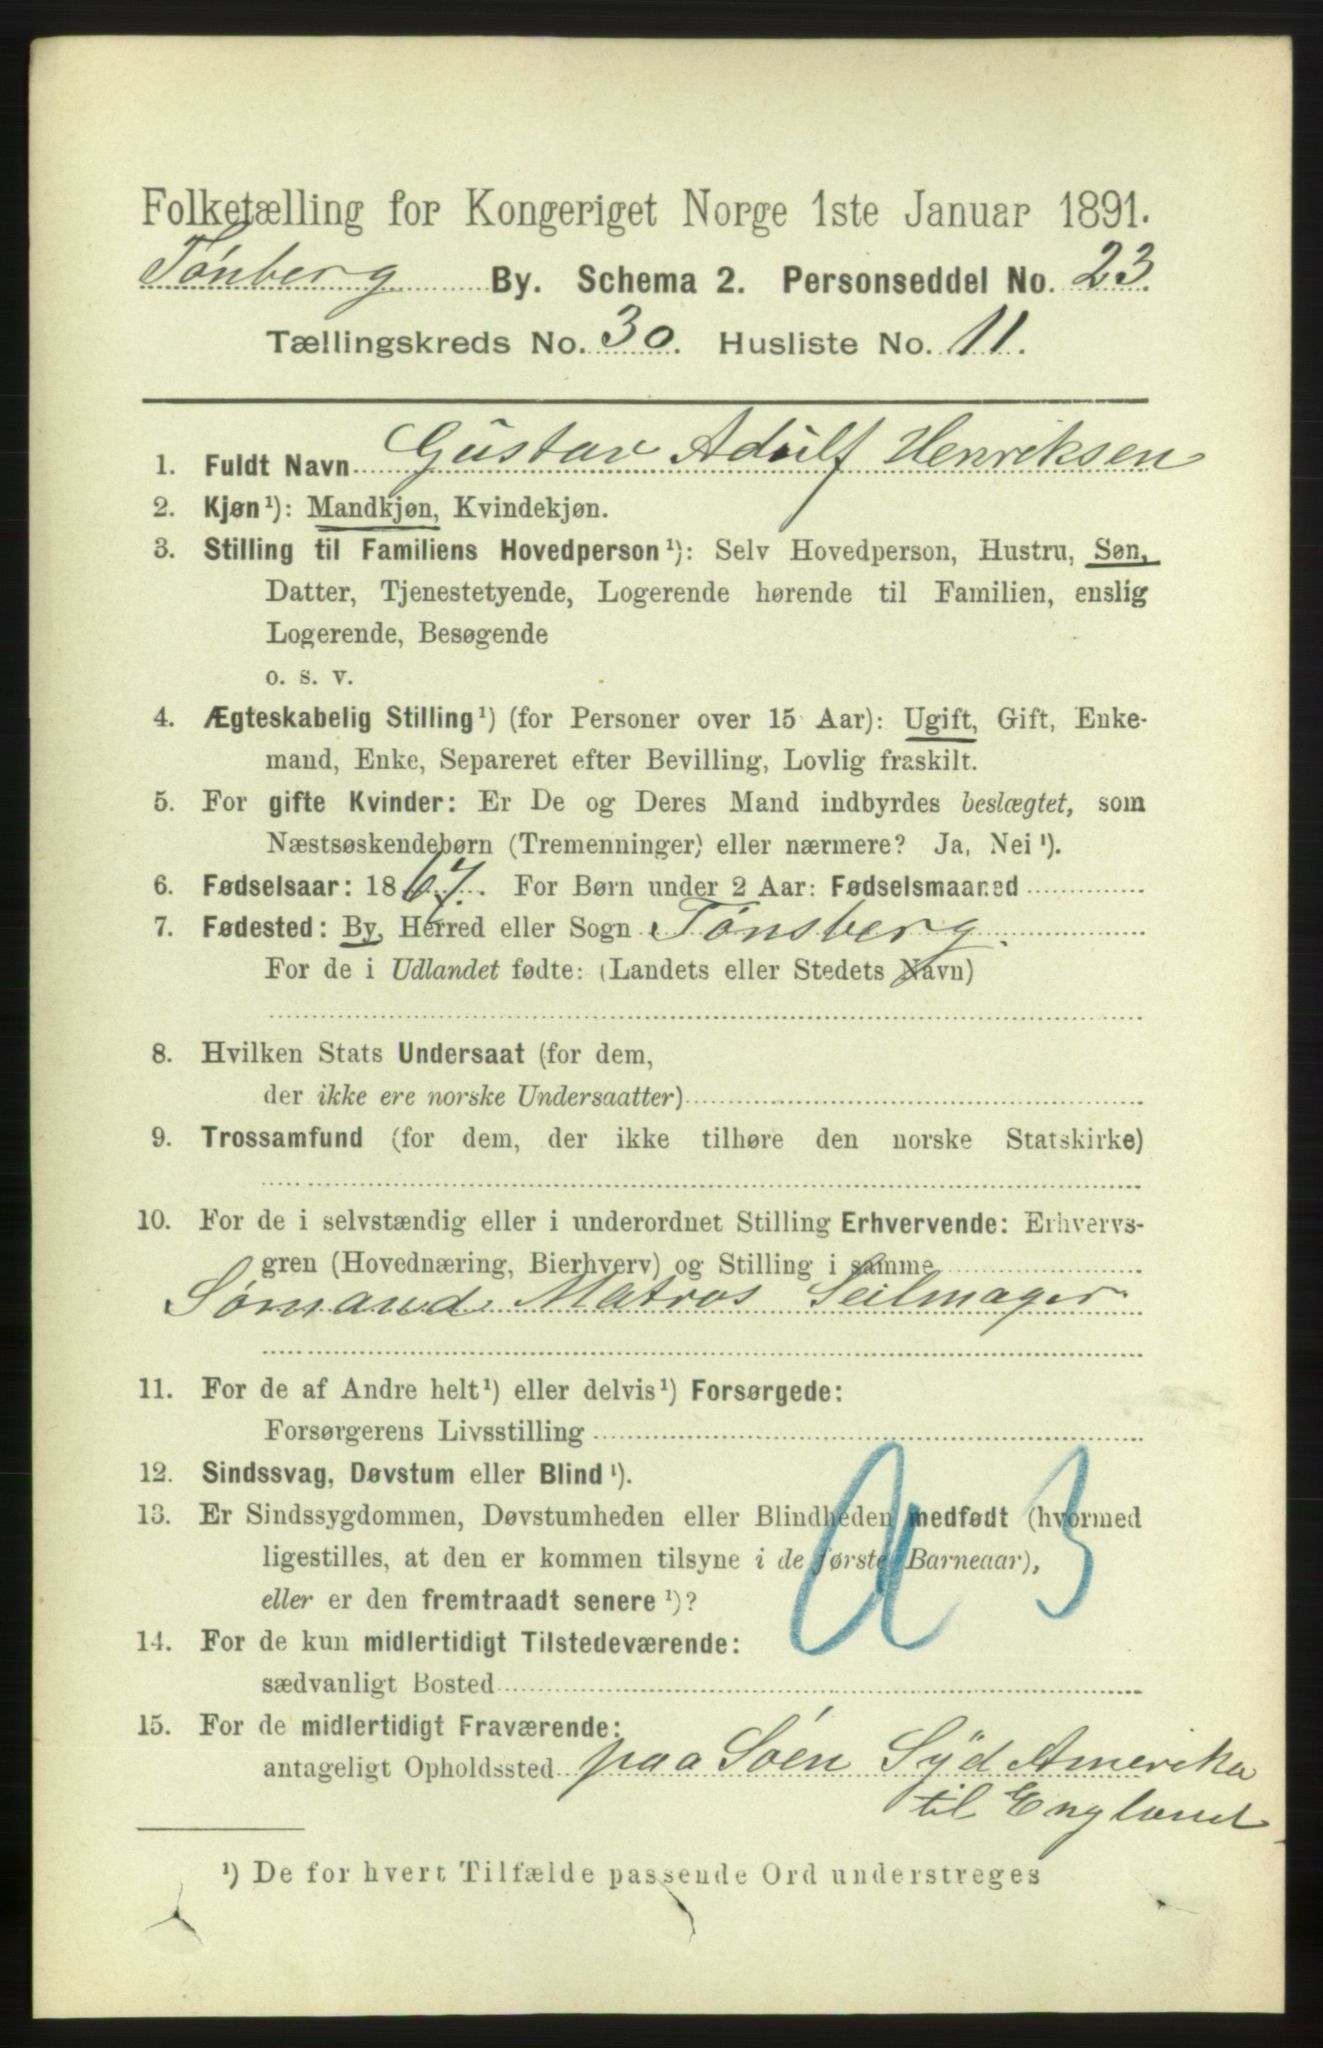 Folketælling for Kongeriget Norge 1ste Januar 1891.
Tønberg By. Schema 2. Personseddel No. 23.
Tællingskreds No. 30. Husliste No. 11.
1. Fuldt Navn Gustav Adolf Henriksen
2. Kjøn¹): Mandkjøn, Kvindekjøn.
3. Stilling til Familiens Hovedperson¹): Selv Hovedperson, Hustru, Søn,
Datter, Tjenestetyende, Logerende hørende til Familien, enslig
Logerende, Besøgende
o. s. v.
4. Ægteskabelig Stilling¹) (for Personer over 15 Aar): Ugift, Gift, Enke-
mand, Enke, Separeret efter Bevilling, Lovlig fraskilt.
5. For gifte Kvinder: Er De og Deres Mand indbyrdes beslægtet, som
Næstsøskendebørn (Tremenninger) eller nærmere? Ja, Nei¹).
6. Fødselsaar: 1867. For Børn under 2 Aar: Fødselsmaaned
7. Fødested: By, Herred eller Sogn Tønsberg.
For de i Udlandet fødte: (Landets eller Stedets Navn)
8. Hvilken Stats Undersaat (for dem,
der ikke ere norske Undersaatter)
9. Trossamfund (for dem, der ikke tilhøre den norske Statskirke)
10. For de i selvstændig eller i underordnet Stilling Erhvervende: Erhvervs-
gren (Hovednæring, Bierhverv) og Stilling i samme
Sømand. Matros Seilmager
11. For de af Andre helt¹) eller delvis¹) Forsørgede:
Forsørgerens Livsstilling
12. Sindssvag, Døvstum eller Blind¹).
13. Er Sindssygdommen, Døvstumheden eller Blindheden medfødt (hvormed
ligestilles, at den er kommen tilsyne i de første Barneaar),
eller er den fremtraadt senere¹)?
14. For de kun midlertidigt Tilstedeværende:
sædvanligt Bosted
15. For de midlertidigt Fraværende:
antageligt Opholdssted paa Søen Syd Amerika
til England
¹) De for hvert Tilfælde passende Ord understreges